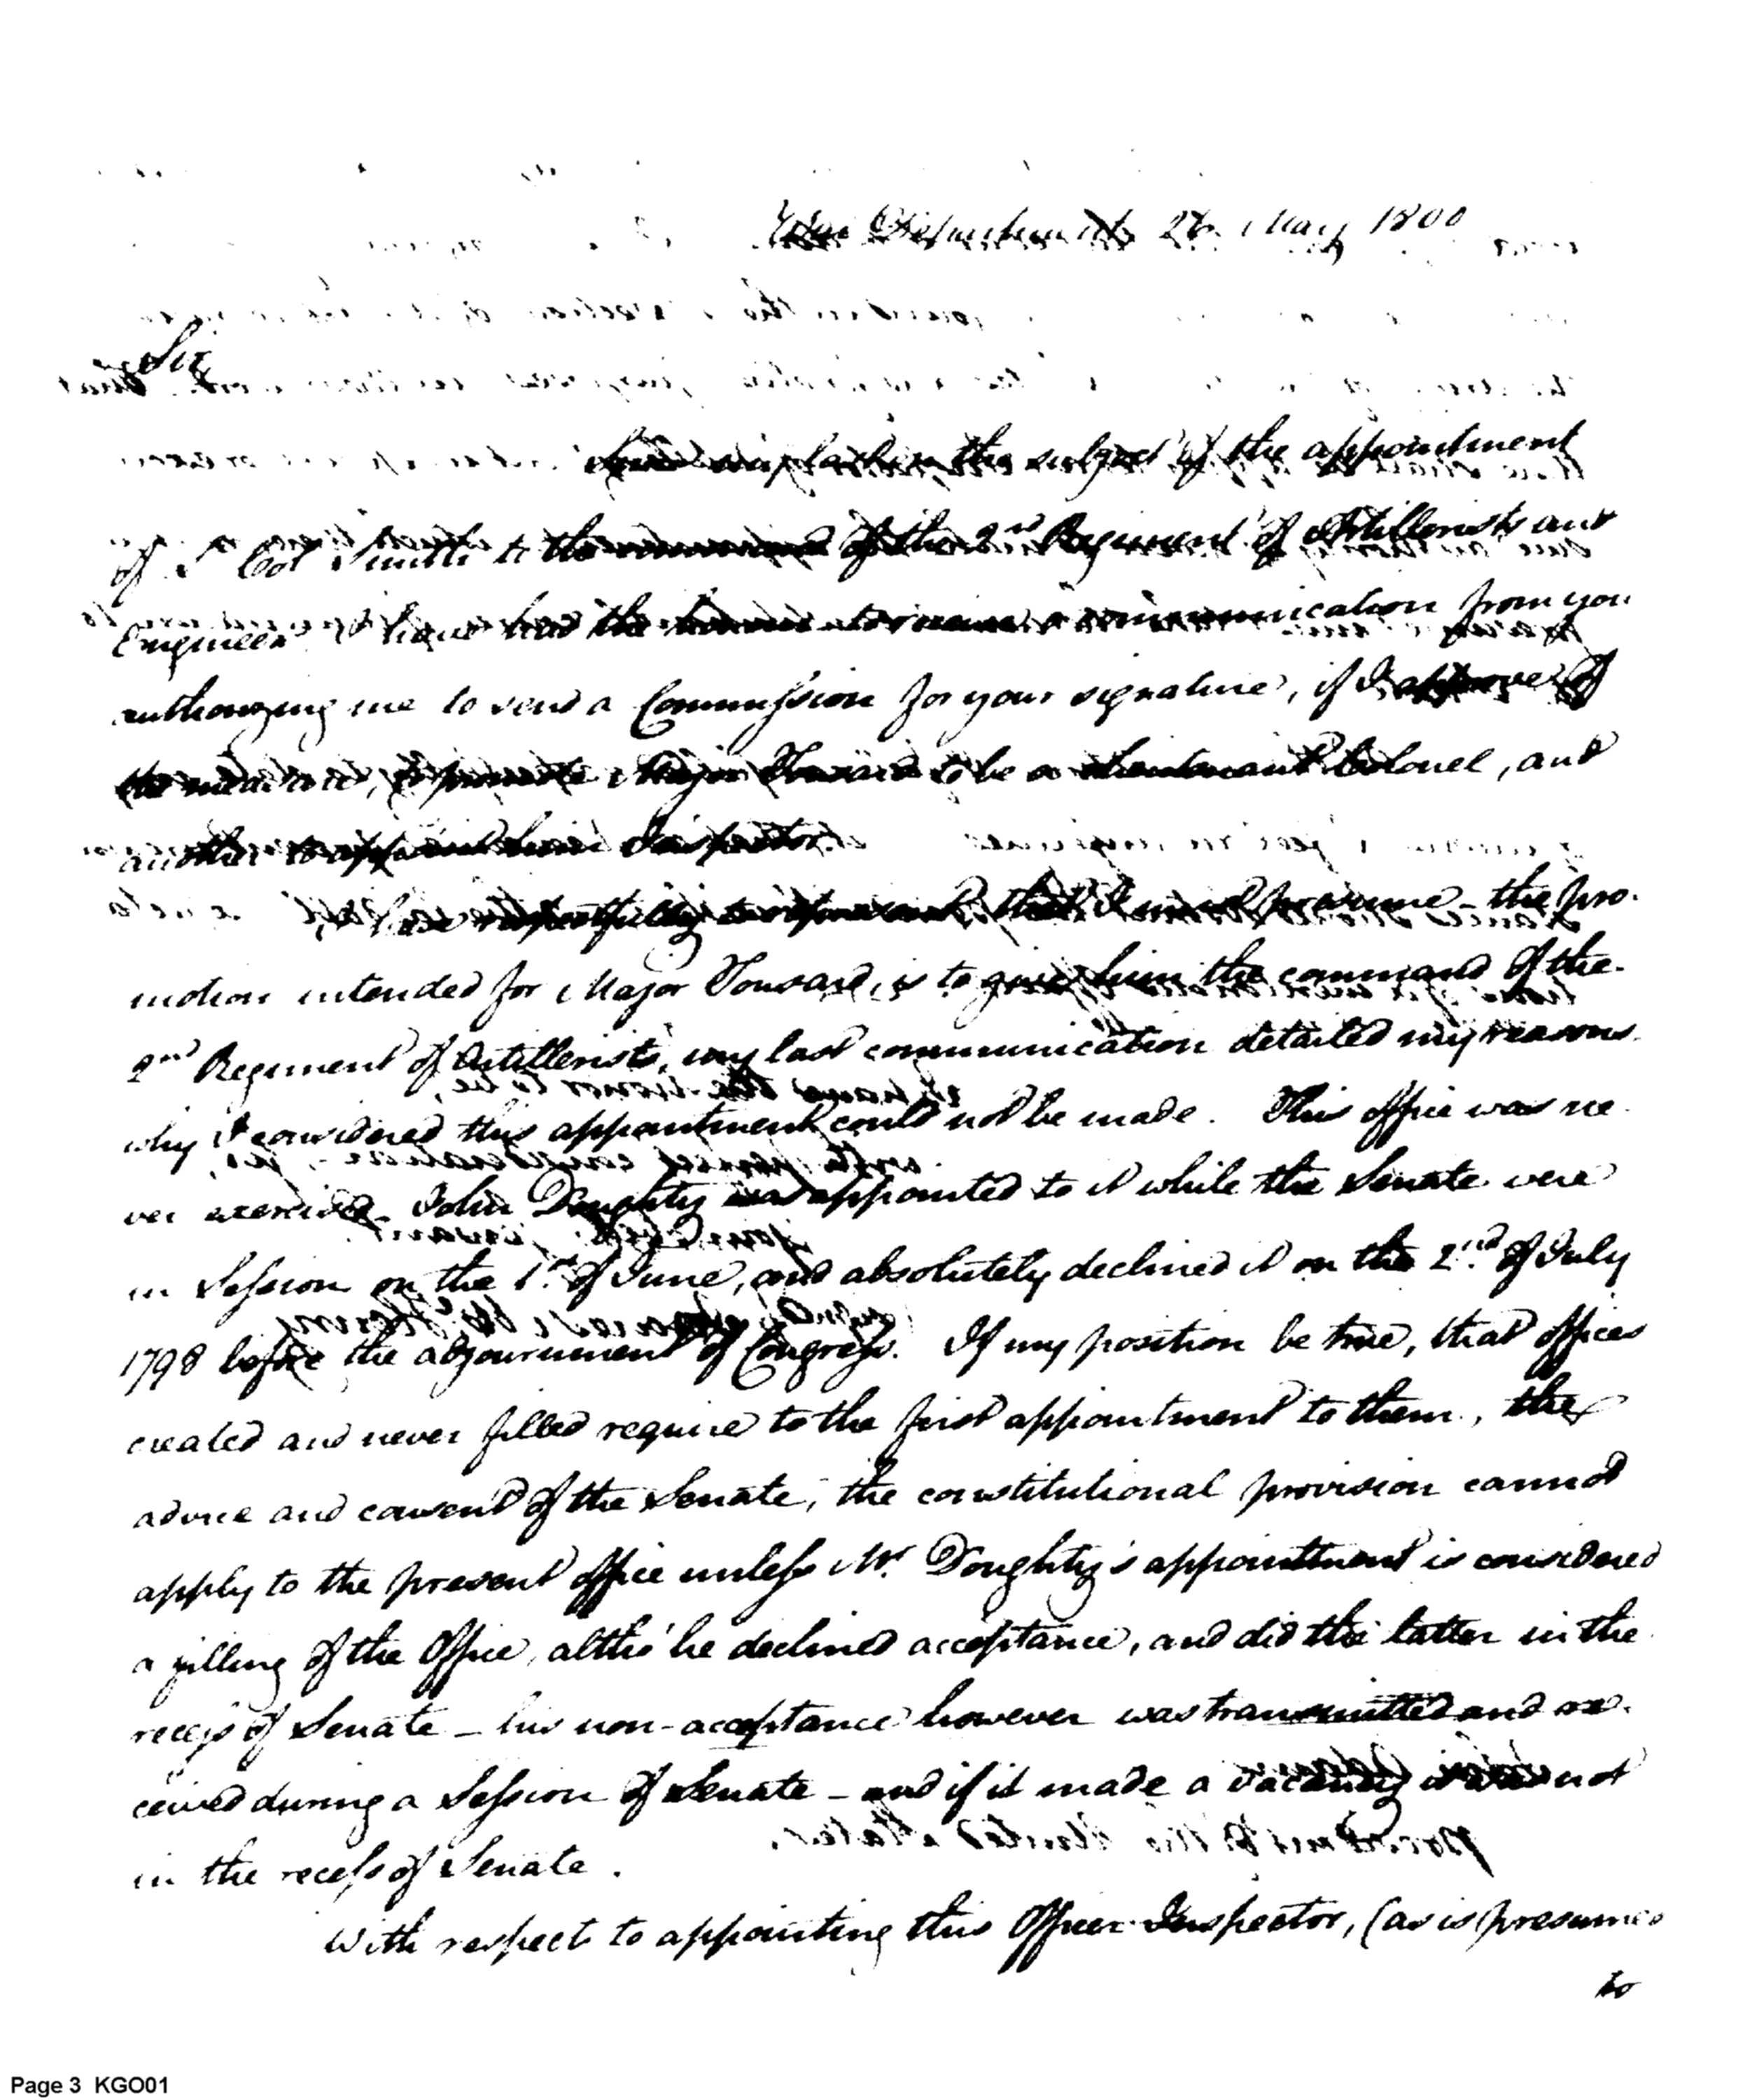 War Department 26 May 1800
Sir
Since my last on the subject of the appointment
of Lt Col Smith to the command of the 2nd Regiment of Artillerists and
Engineers I have had the honor to receive a communication from you
authorizing me to send a Commission for your signature, if I approve of
the measure, to promote Major Tousard to be a Lieutenant Colonel, and
another to appoint him Inspector.
respectfully to represent, that I presume the pro-
motion intended for Major Tousard, is to give him the command of the
2nd Regiment of Artillerists, my last communication detailed my reasons
why I considered this appointment could not be made. This office was ne-
ver exercised. John Doughty was appointed to it while the Senate were
in Session on the 1st of June, and absolutely declined it on the 2nd of July
1798 before the adjournment of Congress. If my position be true, that offices
created and never filled require to the first appointment to them, the
advice and consent of the Senate, the constitutional provision cannot
apply to the present office unless Mr. Doughty's appointment is considered
a filling of the Office, altho' he declined acceptance, and did the latter in the
recess of Senate – his non-acceptance however was transmitted and re-
ceived during a Session of Senate – and if it made a vacancy it was not
in the recess of Senate.
With respect to appointing this Officer Inspector, (as is presumed
to
Page 3 KGO01